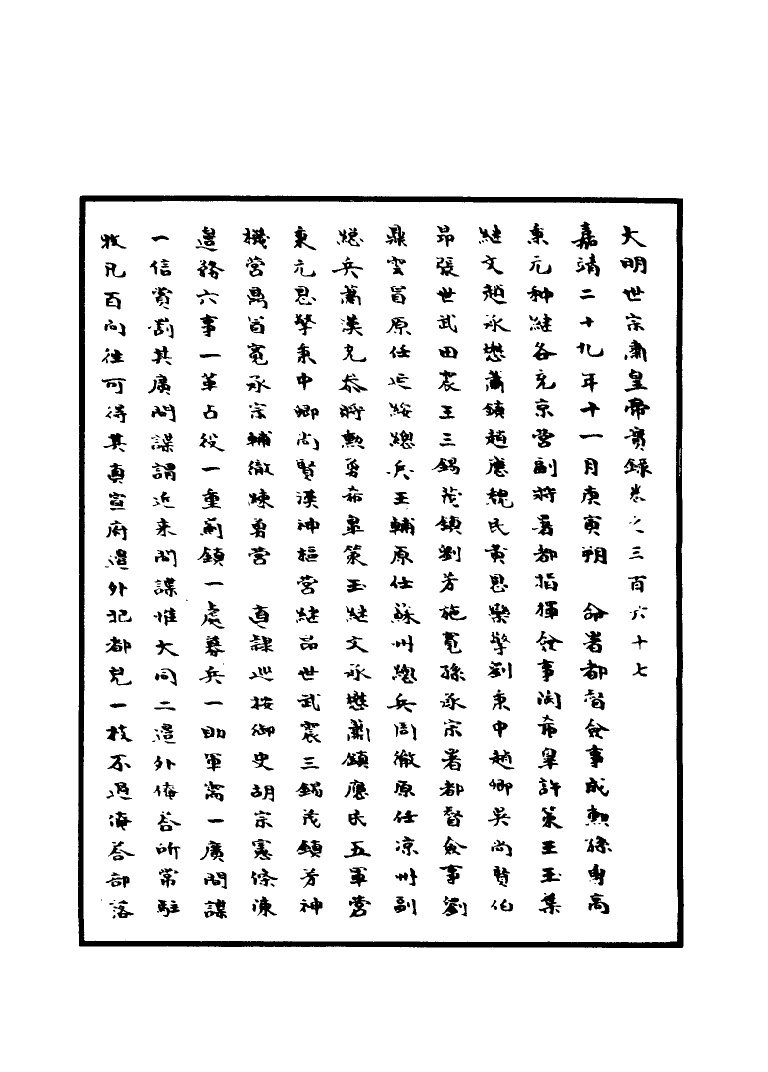 大明世宗肅皇帝實錄卷之三百六十七
嘉靖二十九年十一月庚寅朔　命署都督僉事成勲孫勇高
秉元种継各充京營副將署都指揮僉事閔希臯許策王玉葉
継文趙承懋蕭鎮趙應魏民黃恩樂擎劉秉中趙卿吳尚賢伯
昂張世武田震王三錫茂鎮劉芳施寬孫承宗署都督僉事劉
鼎雲冒原任延綏總兵王輔原任蘇州總兵周徹原任凉州副
總兵蕭漢充叅將勲勇希臯策玉継文承懋蕭鎮應民五軍營
秉元恩擎秉中卿尚賢漢神樞營継昂世武震三錫茂鎮芳神
機營鼎冒寬承宗輔徹練勇營　直隸巡按御史胡宗憲條陳
邊務六事一革占役一重薊鎮一處募兵一助軍需一廣間諜
一信賞罰其廣間諜謂近来間諜惟大同二邊外俺荅所常駐
牧凡百向往可得其真宣府邊外把都兒一枝不過俺荅部落